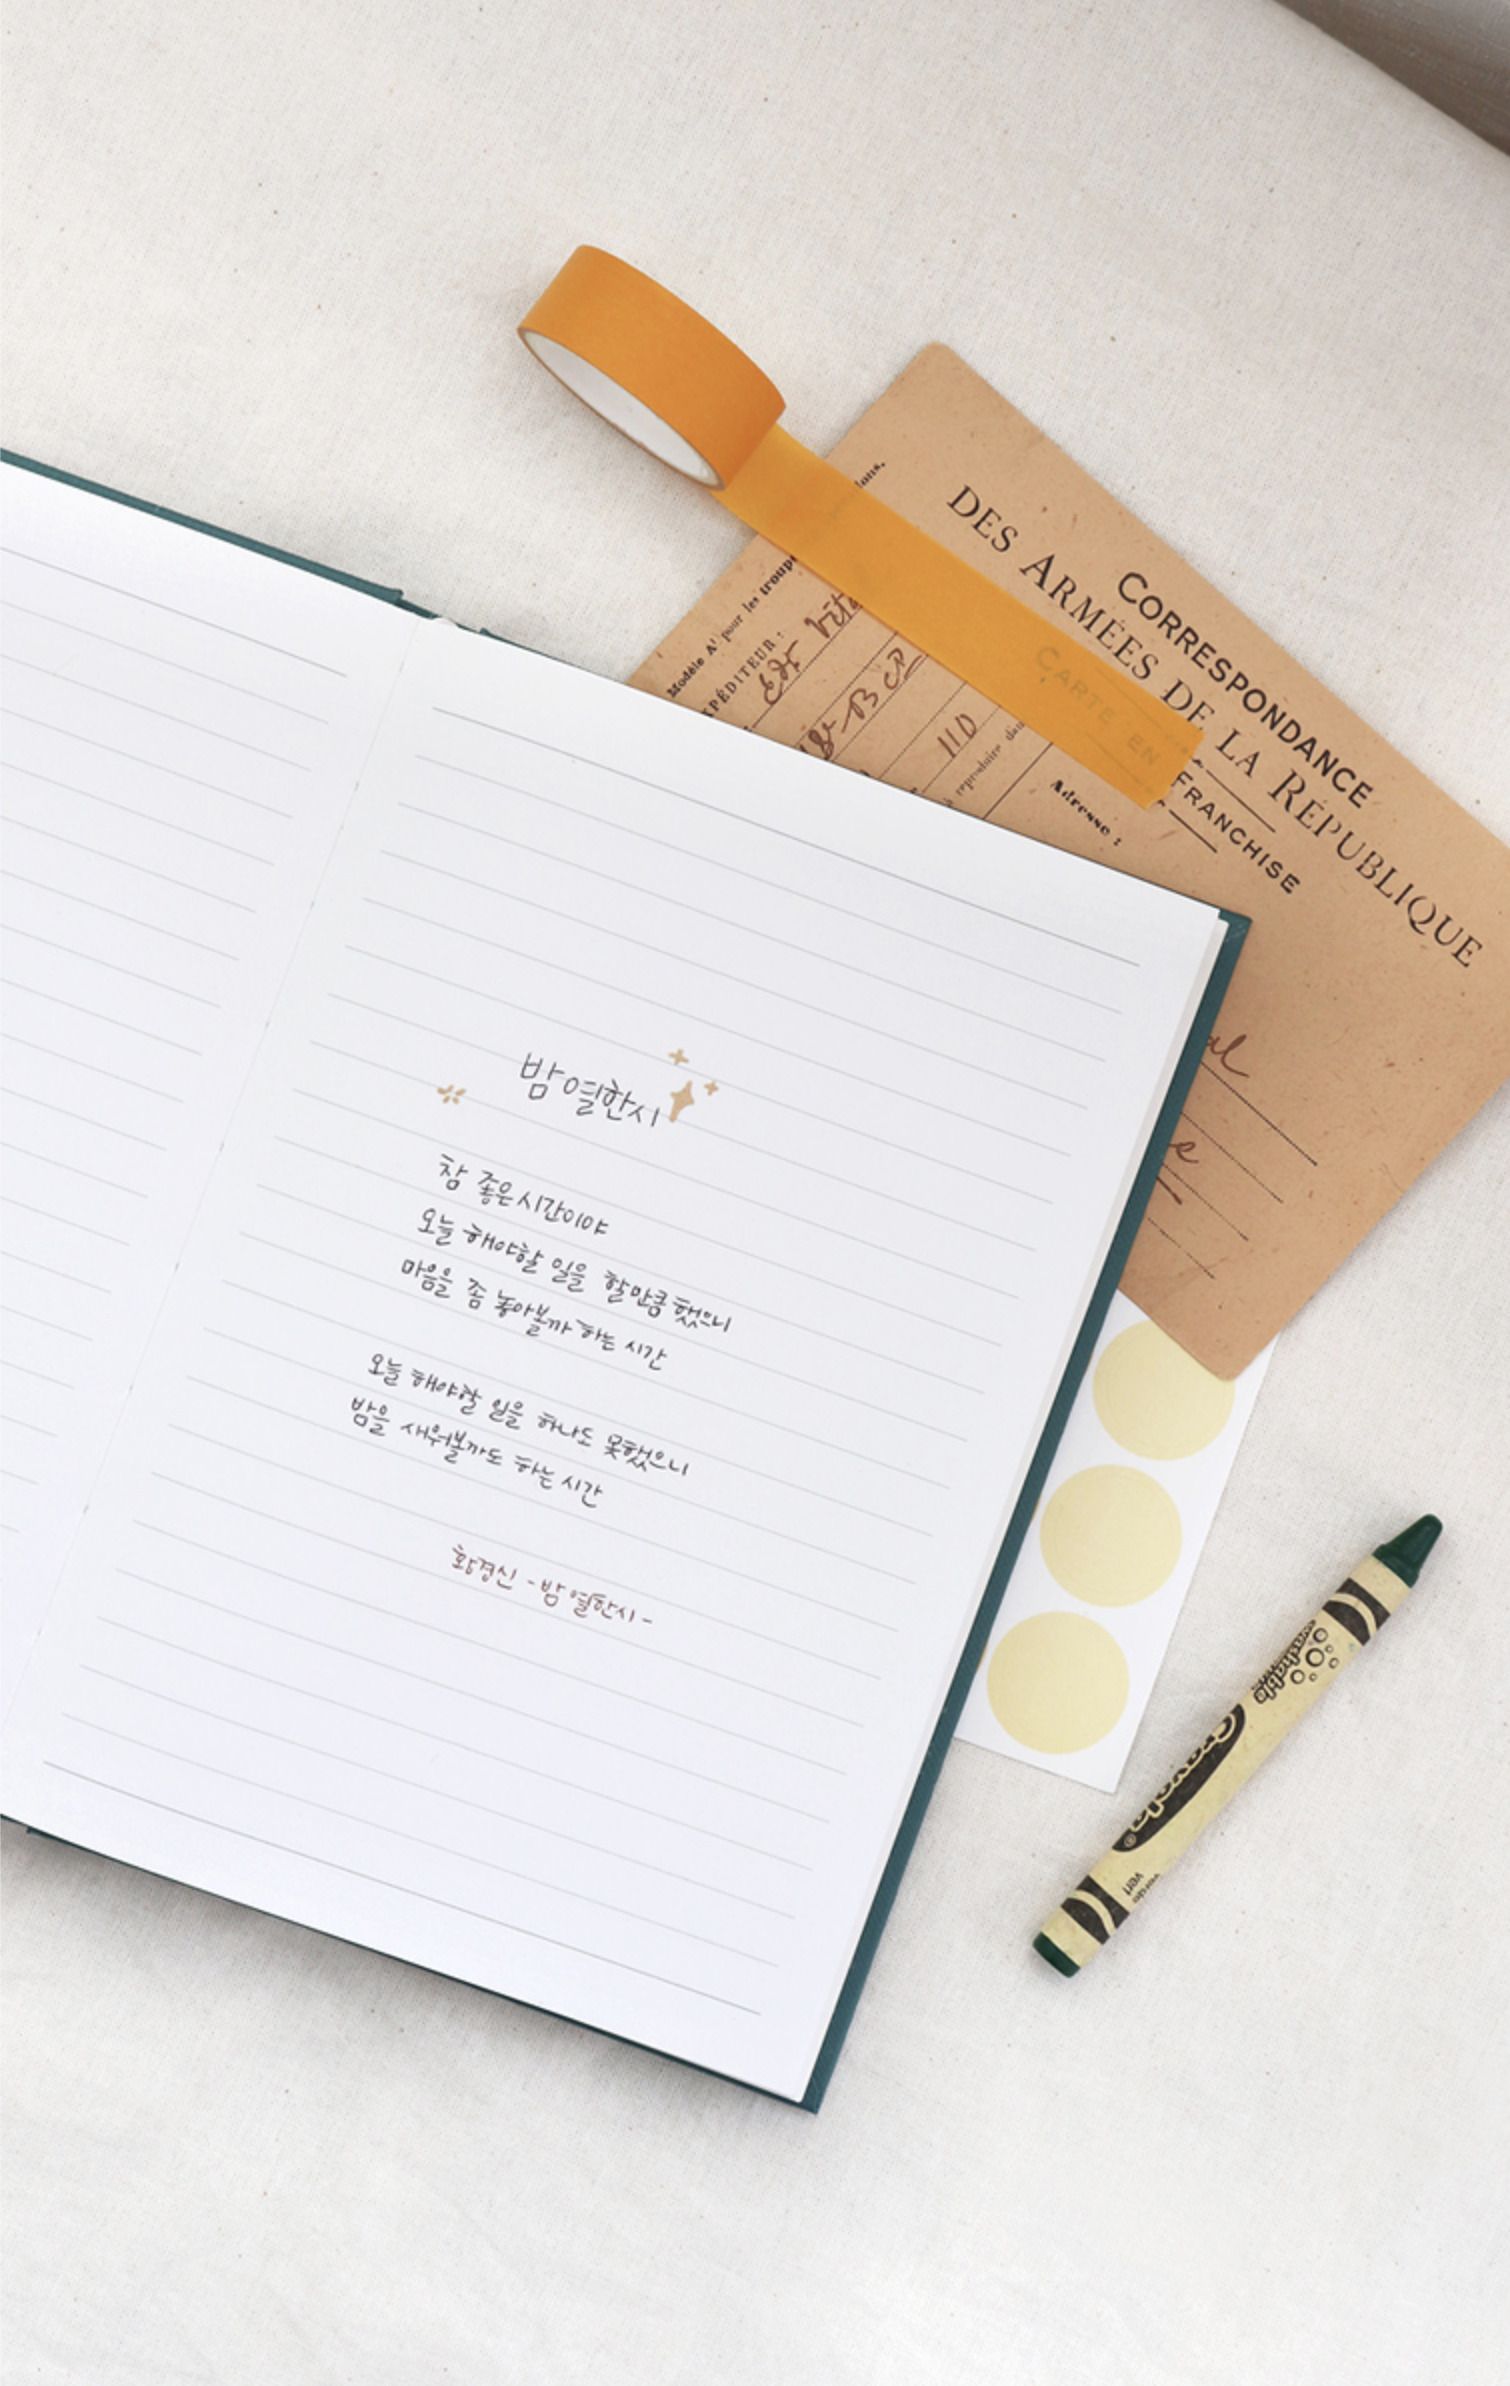 밤 열한시
참 좋은 시간이야
오늘 해야할 일을 할만큼 했으니
마음을 좀 놓아볼까 하는 시간
오늘 해야할 일을 하나도 못했으니
밤을 새워볼까도 하는 시간
황경신 -밤 열한시-
CORRESPONDANCE
DES ARMÉES DE LA RÉPUBLIQUE
CARTE EN FRANCHISE
Modèle A' pour les troupe
EXPÉDITEUR:
110
reproduire dan
Adresse :
washable
Crayola
verde
vert